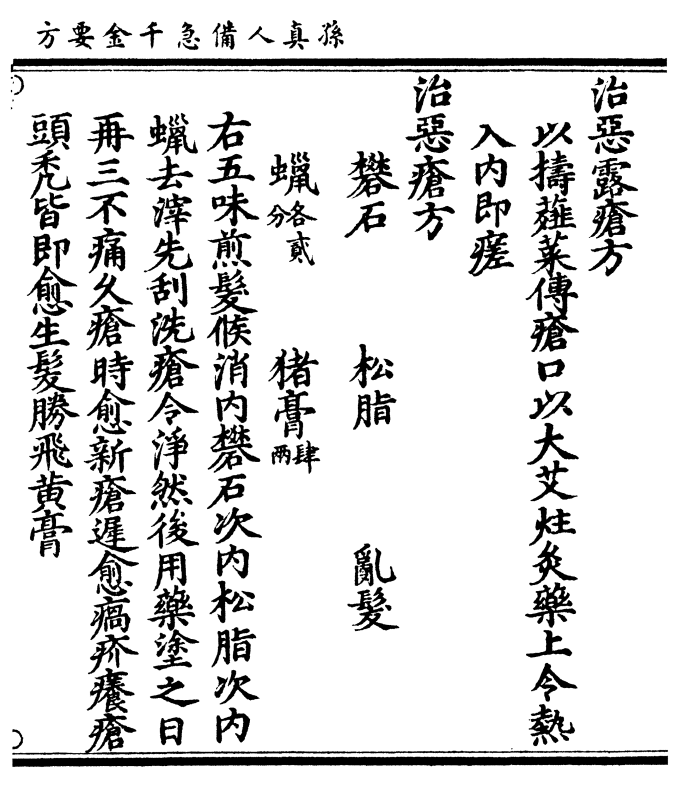 孫真人備急千金要方
治惡露瘡方
以擣薤菜傅瘡口以大艾炷灸藥上令熱
入内即瘥
治惡瘡方
礬石　松脂　亂髮
蠟各貳分　猪膏肆兩
右五味煎髮候消内礬石次内松脂次内
蠟去滓先刮洗瘡令淨然後用藥塗之日
再三不痛久瘡時愈新瘡遲愈瘑疥癢瘡
頭禿皆即愈生髮勝飛黄膏